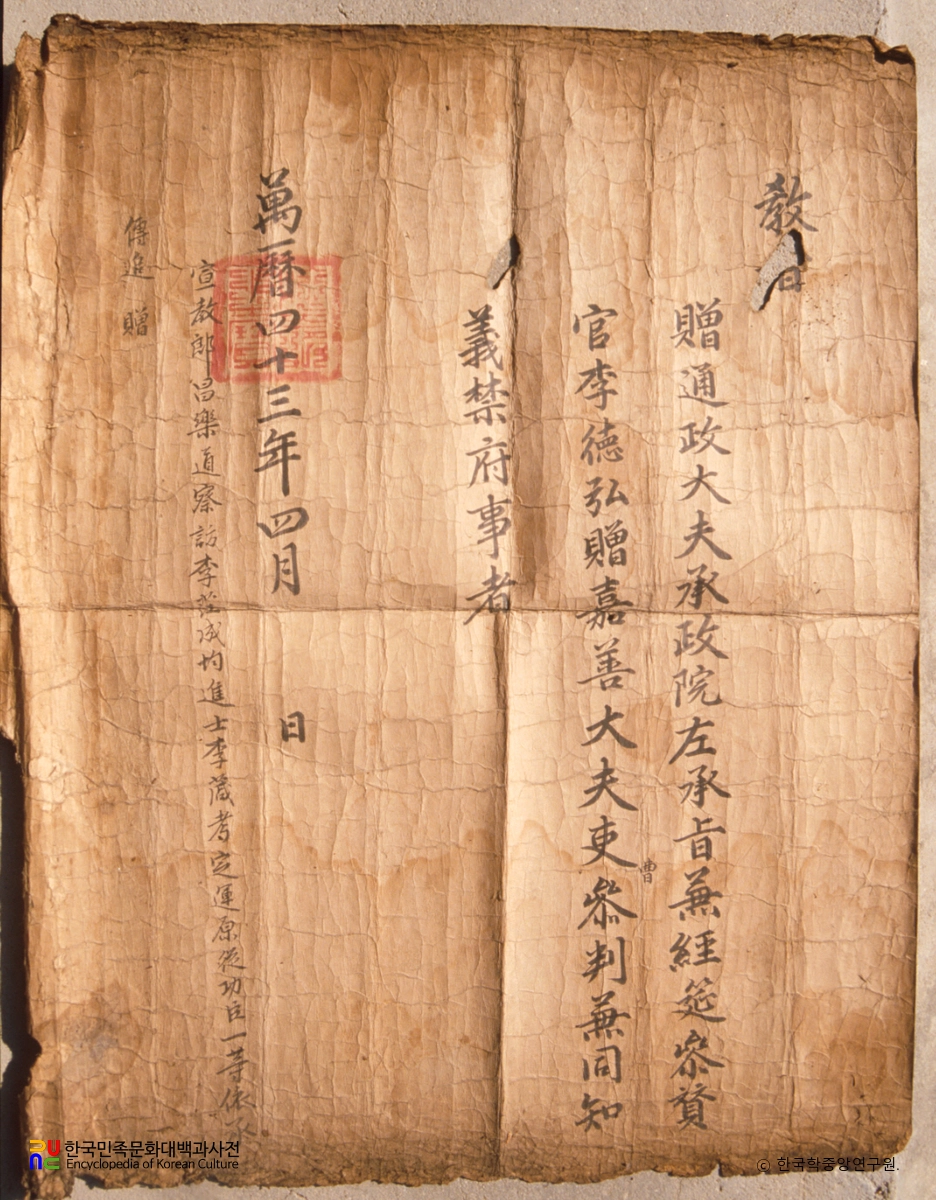 教旨
贈通政大夫承政院左承旨兼經筵參贊
官李德弘贈嘉善大夫吏曹參判兼同知
義禁府事者
萬曆四十三年四月 日
宣教郎昌樂道察訪李莅成均進士李蕆考定運原從功臣一等依承
傳追 贈
한국민족문화대백과사전
Encyclopedia of Korean Culture
© 한국학중앙연구원.